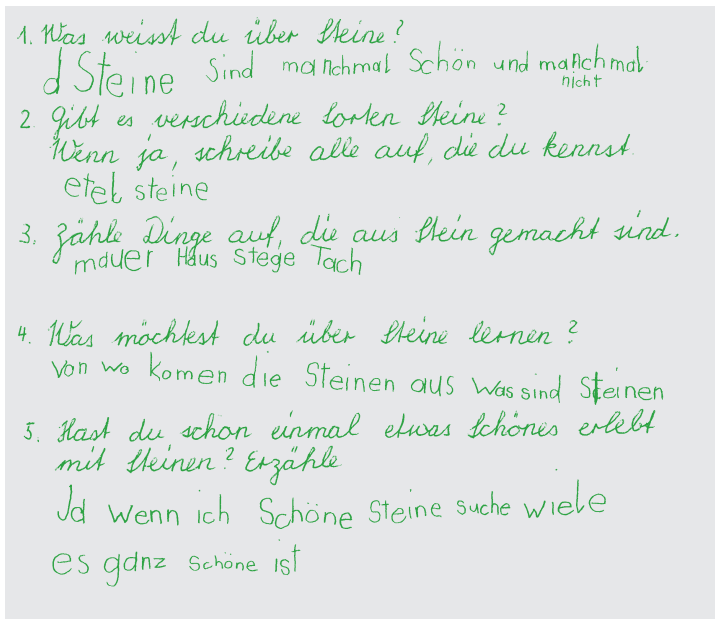 1. Was weisst du über Steine?
d Steine Sind manchmal Schön und manchmal
nicht
2. Gibt es verschiedene Sorten Steine?
Wenn ja, schreibe alle auf, die du kennst.
etel steine
3. Zähle Dinge auf, die aus Stein gemacht sind.
mauer Haus Stege Tach
4. Was möchtest du über Steine lernen?
Von wo komen die Steinen aus Was sind Steinen
5. Hast du schon einmal etwas Schönes erlebt
mit Steinen? Erzähle
Ja wenn ich Schöne Steine suche wiele
es ganz schöne ist